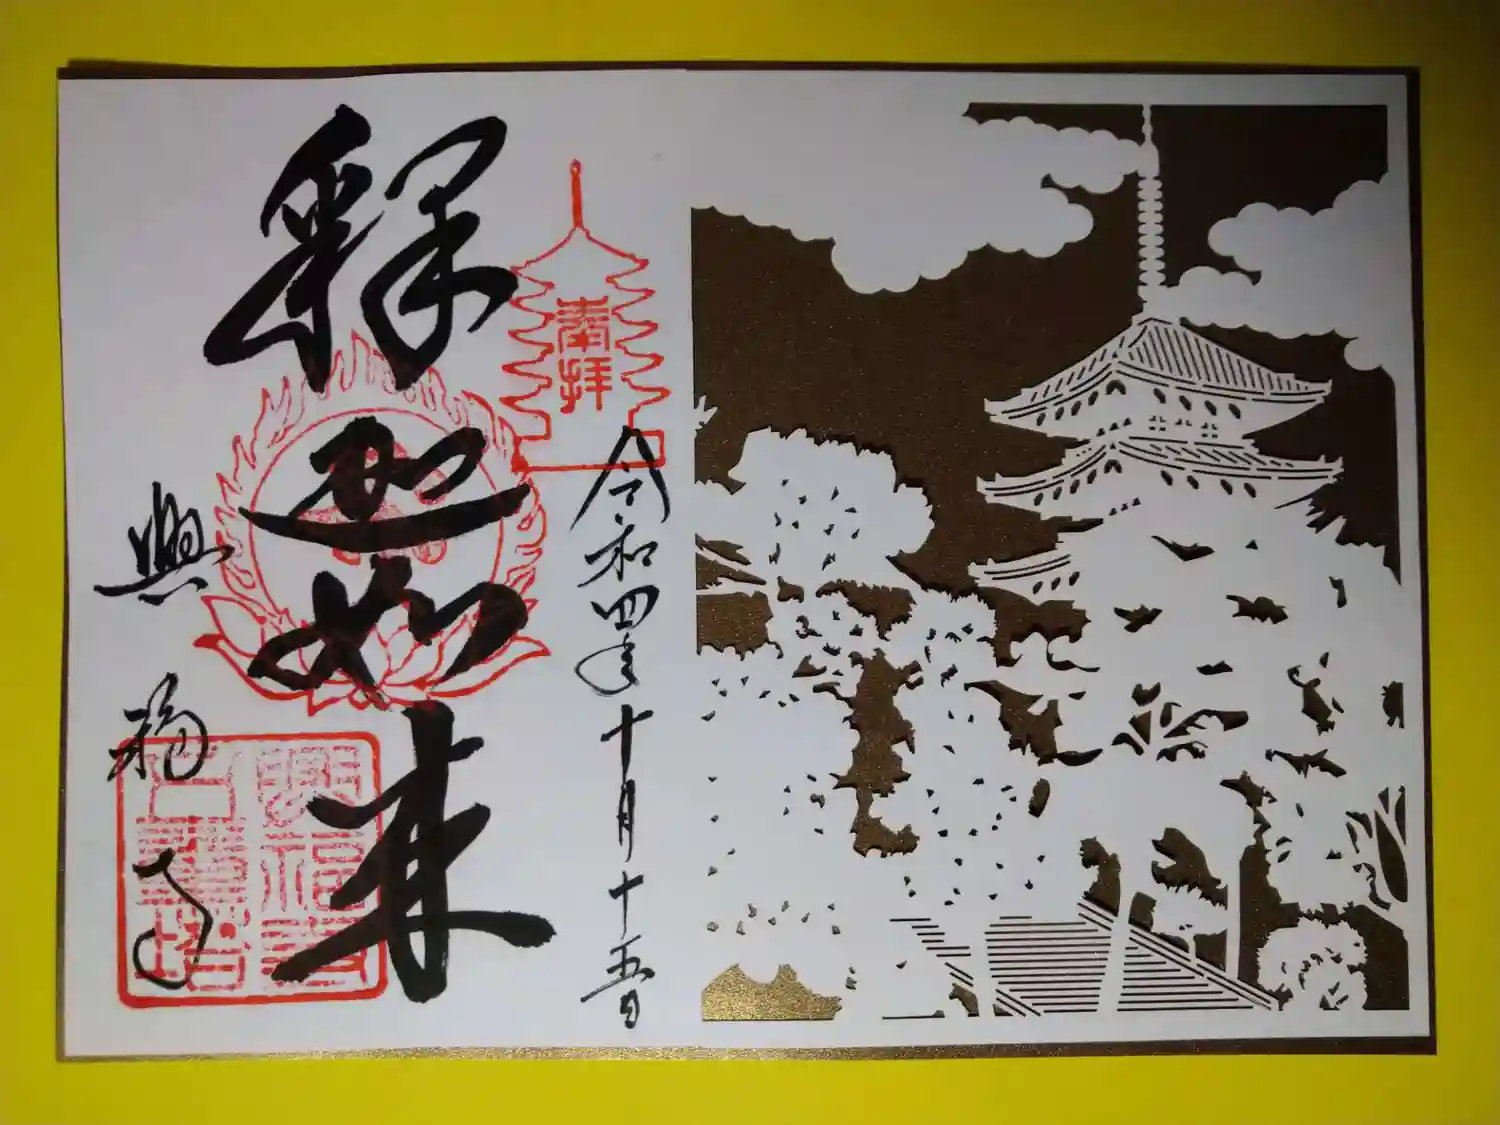 奉拝
令和四年十月十五日
釋迦如来
興福寺
興福寺
五重塔